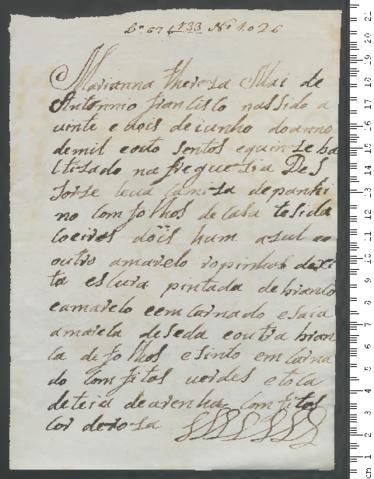 Lº 67 f 133 Nº 1026
Marianna thereza Mai de
Antonnio francisco nassido a
uinte e dois de iunho do anno
de mil e outo sentos e quinze ba
litisado na freguesia De S
Jorse leua camiza de panhi
no com folhos de casa tesida
coeiros dois hum asul e o
outro amarelo ropinhos de xi
ta escura pintada de branco
e amarelo e emcarnado e saia
amarela de seda e outra bran
ca de folhos e sinto em carna
do com fitos uerdes e toca
de teia de arenha com fitos
cor de rosa
0 1 2 3 4 5 6 7 8 9 10 11 12 13 14 15 16 17 18 19 20 21
cm